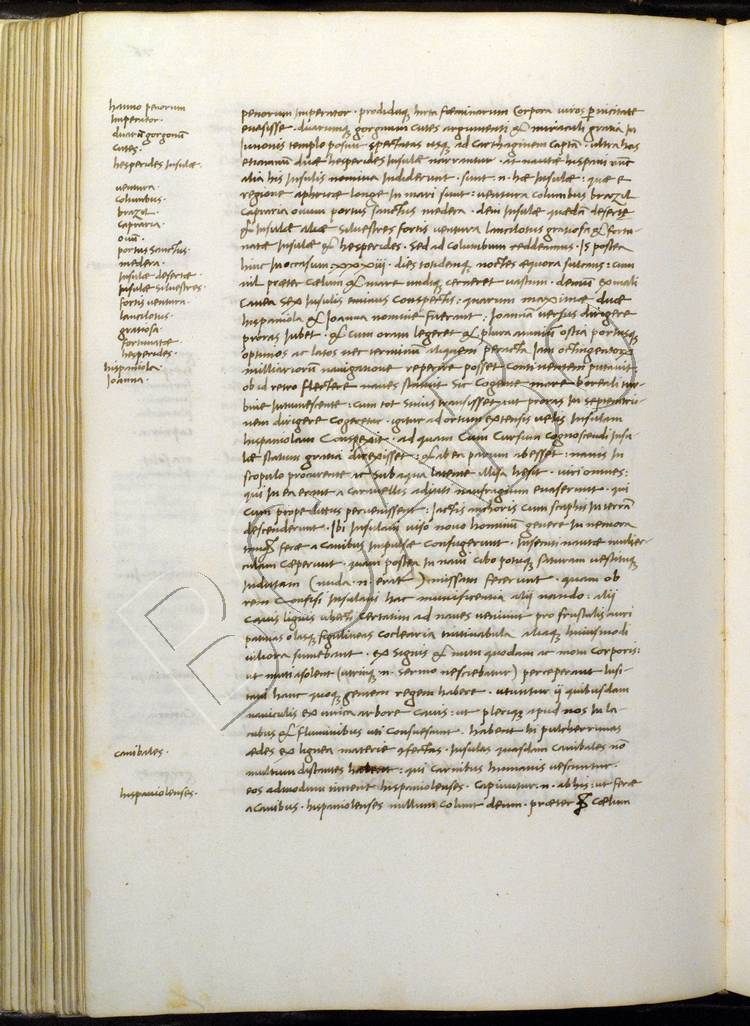 hanno penorum
Imperator.
duarũ gorgonũ
Cutes.
hesperides Insulæ.
ventura.
Columbus.
brazil.
Capraria.
ouũ.
portus Sanctus.
medera.
Insulæ desertæ.
Insulæ Siluestres.
fortis ventura.
lancilotus.
gratiosa.
fortunatæ.
hesperides.
hispaniola.
Joanna.
canibales.
hispaniolenses.
penorum Imperator. prodidaq; hirta fœminarum Corpora viros pernicitate
euasisse. duarumq; gorgonum Cutes argumenti & miraculi gratia In
Junonis templo posuit Spectatas usq; ad Carthaginem Captã. vltra has
etiamnũ duæ hesperides Insulæ narrantur. at nautæ hispani nũc
alia his Insulis nomina Indiderunt. Sunt .n. hæ Insulæ: quæ e
regione aphricæ longe In mari Sunt: ventura Columbus brazil
Capraria ouum portus Sanctus medera. dein Insulæ quædã desertę
& Insulæ aliæ Siluestres fortis ventura lancilotus gratiosa & fortu-
natæ Insulæ & hesperides. Sed ad Columbum reddeamus. Is postea
hinc In occasum xxxiij. dies totidemq; noctes æquora Sulcans: cum
nil præter Cælum & mare undiq; cerneret vastum. demũ ex mali
Cauea Sex Insulis eminus Conspectis: quarum maximæ duæ
hispaniola & Joanna nomine fuerant. Joannã versus dirigere
proras Iubet. & cum oram legeret & plura amniũ ostia portusq;
optimos ac latos nec terminũ aliquem peracta Iam octingentorũ
milliariorũ nauigatione reperire posset Continentem putauit.
ob id retro flectere naues statuit Sic Cogente mare boreali tur-
bine Intumescente. Cum tot Sinus transisset: ut proras In septentrio-
nem dirigere Cogeretur. igitur ad ortum extensis velis Insulam
hispaniolam Conspexit. ad quam Cum Cursum Cognoscendi Insu-
læ statum gratia direxisset: & ab ea parum abesset: nauis In
scopulo procurrente ac Sub aqua latente Illisa hesit. viri omnes:
qui In ea erant a Carauellis adiuti naufragium euaserunt. qui
Cum prope littus peruenissent: Iactis anchoris Cum scaphis In terrã
descenderunt. Ibi Insulani viso nouo hominũ genere In nemora
feræ a Canibus Impulsæ Confugerunt. Insequuti nautæ mulier-
culam Cæperunt. quam postea In naui Cibo potuq; Saturam vestituq;
Indutam (nuda .n. erat) missam fecerunt. quam ob
rem Confisi Insulani hac munificentia alij nando: alij
Cauis lignis vecti Certatim ad naues veniunt pro frustulis auri
patinas ollasq; figulineas Coclearia tintinabula aliaq; huiusmodi
viliora Sumebant. ex Signis & nutu quodam ac motu Corporis:
ut muti solent (utrinq; .n. Sermo nesciebatur) perceperant lusi-
tani hanc quoq; gentem regem habere. vtuntur ij quibusdam
nauiculis ex unica arbore Cauis: ut pleriq; apud nos In la-
cubus & fluminibus uti Consueuerunt. habent hi pulcherrimas
ædes ex lignea materie confectas. Insulas quasdam Canibales nõ
multum distantes habent: qui Carnibus humanis vescuntur.
eos admodum timent hispaniolenses. Capiuntur .n. ab his: ut feræ
a Canibus. hispaniolenses nullum Colunt deum. præter Cælum